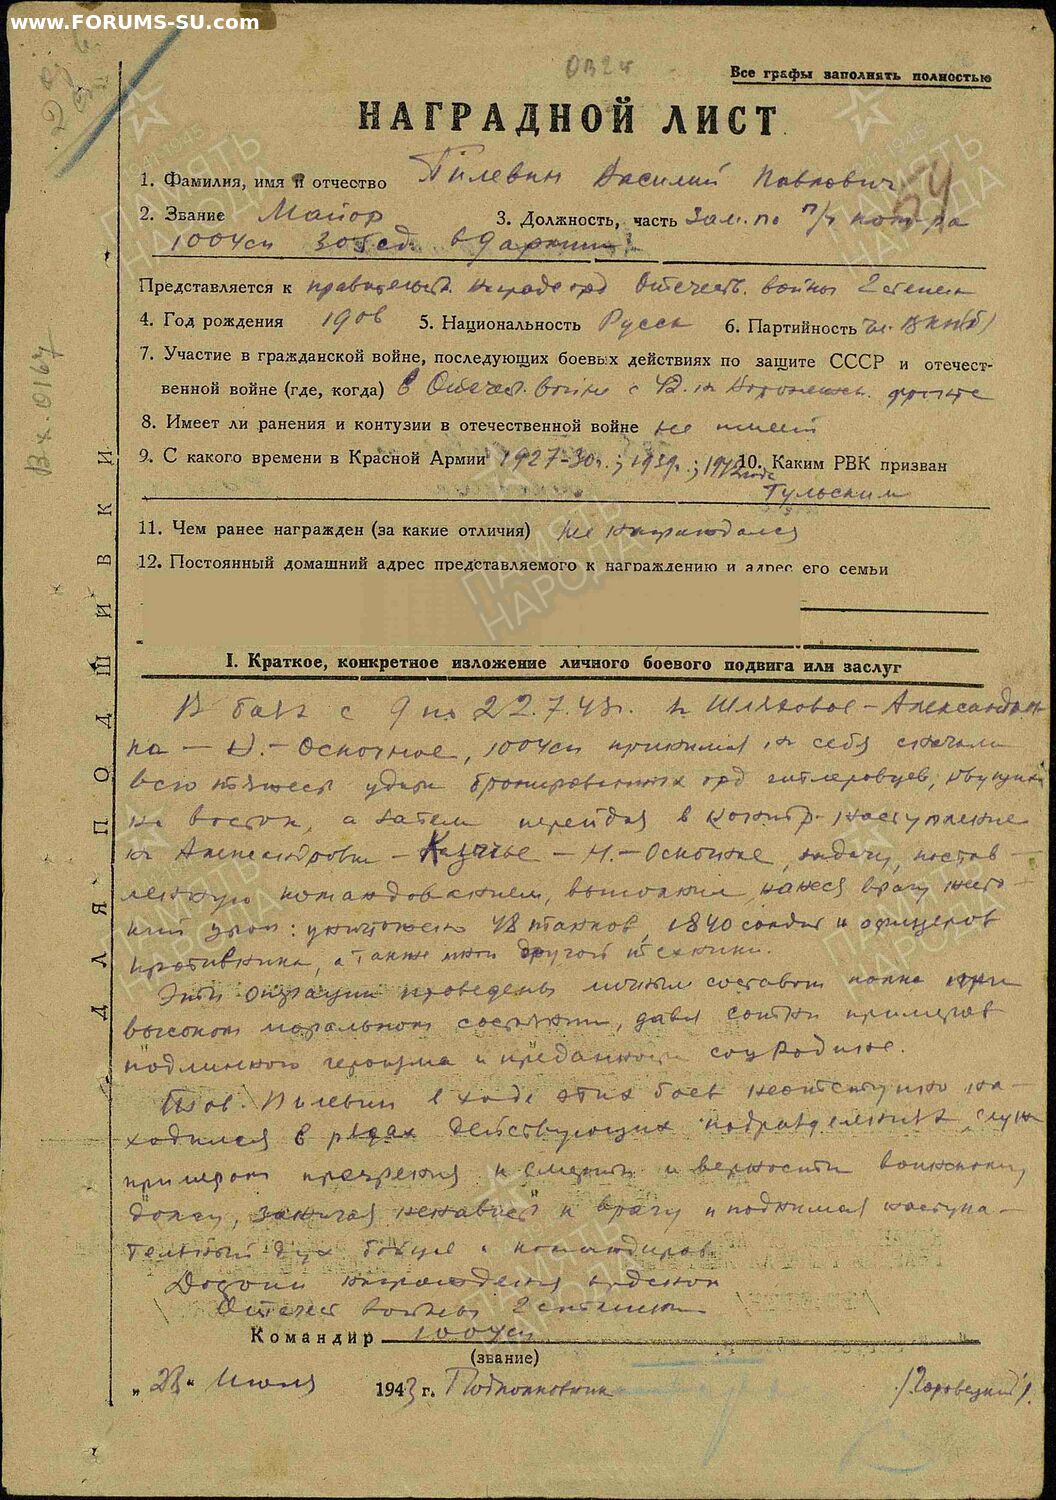 www.FORUMS-SU.com
Все графы заполнять полностью
НАГРАДНОЙ ЛИСТ
1. Фамилия, имя и отчество Пилевин Василий Павлович
2. Звание Майор 3. Должность, часть Зам. по п/ч ком-ра
1004 сп 305 сд
Представляется к правительств. награде орд Отечеств. войны 2 степени
4. Год рождения 1906 5. Национальность Русск 6. Партийность чл. ВКП(б)
7. Участие в гражданской войне, последующих боевых действиях по защите СССР и отечест-
венной войне (где, когда) В Отечеств. войне с 42. на Воронежск. фронте
8. Имеет ли ранения и контузии в отечественной войне не имеет
9. С какого времени в Красной Армии 1927-30г.; 1939г.; 1942 года 10. Каким РВК призван
Тульским
11. Чем ранее награжден (за какие отличия) не награждался
12. Постоянный домашний адрес представляемого к награждению и адрес его семьи
I. Краткое, конкретное изложение личного боевого подвига или заслуг
В боях с 9 по 22.7.43г. на Шляховое - Александров-
ка - - Оскочное, 1004 сп принимая на себя сначала
всю тяжесть удара бронированных орд гитлеровцев,
на восток, а затем перейдя в контр-наступление
на Александровка - Казачье - Н. - Оскочное, задачу, постав-
ленную командованием, выполнил, нанеся врагу жесто-
кий урон: уничтожено 48 танков, 1840 солдат и офицеров
противника, а также много другой техники.
Эти операции проведены личным составом полка при
высоком моральном состоянии, давая сотни примеров
подлинного героизма и преданности соц Родине.
Тов. Пилевин в ходе этих боев неотступно на-
ходился в рядах действующих подразделений, служа
примером презрения к смерти и верности воинскому
долгу, зажигая ненависть к врагу и поднимая наступа-
тельный дух бойцов и командиров.
Достоин награждения орденом
Отечест войны 2 степени
Командир 1004 сп
(звание)
„23“ Июля 1943 г. Подполковник
ДЛЯ ПОДШИВКИ
ПАМЯТЬ НАРОДА